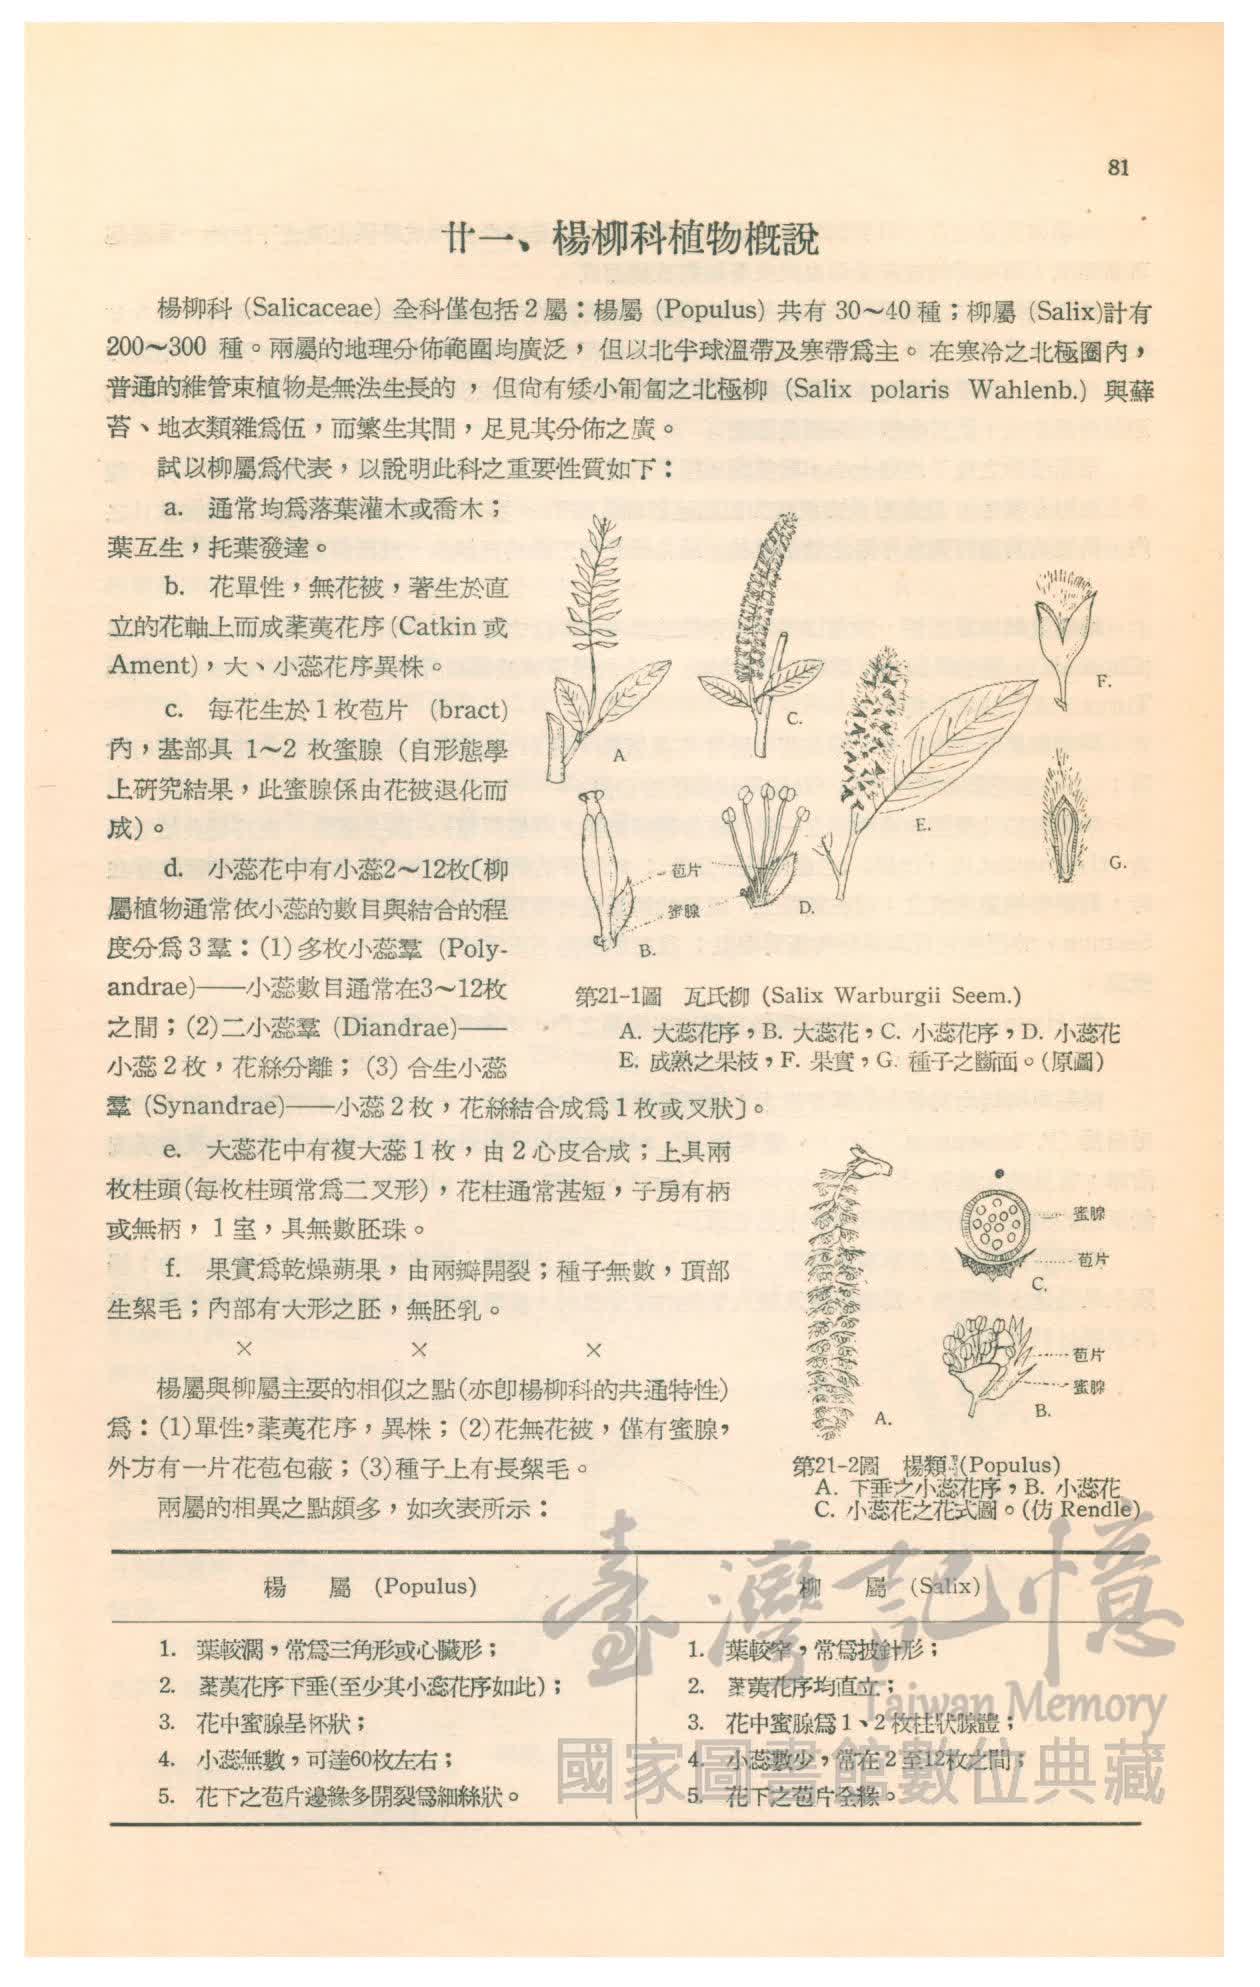 81
廿一、楊柳科植物概說
楊柳科 (Salicaceae) 全科僅包括2屬：楊屬 (Populus) 共有 30～40 種；柳屬 (Salix)計有
200～300 種。兩屬的地理分佈範圍均廣泛，但以北半球溫帶及寒帶爲主。在寒冷之北極圈內，
普通的維管束植物是無法生長的，但尙有矮小匍匐之北極柳 (Salix polaris Wahlenb.) 與蘚
苔、地衣類雜爲伍，而繁生其間，足見其分佈之廣。
試以柳屬爲代表，以說明此科之重要性質如下：
a. 通常均爲落葉灌木或喬木；
葉互生，托葉發達。
b. 花單性，無花被，著生於直
立的花軸上而成葇荑花序(Catkin 或
Ament)，大、小蕊花序異株。
c. 每花生於1枚苞片 (bract)
內，基部具 1～2 枚蜜腺（自形態學
上研究結果，此蜜腺係由花被退化而
成)。
d. 小蕊花中有小蕊2～12枚〔柳
屬植物通常依小蕊的數目與結合的程
度分爲3羣：(1)多枚小蕊羣 (Poly-
andrae)——小蕊數目通常在3～12枚
之間；(2)二小蕊羣 (Diandrae)——
小蕊2枚，花絲分離；(3) 合生小蕊
羣 (Synandrae)——小蕊2枚，花絲結合成爲1枚或叉狀〕。
A
C.
F.
E.
G.
苞片
蜜腺
D.
B.
第21-1圖 瓦氏柳 (Salix Warburgii Seem.)
A. 大蕊花序，B. 大蕊花，C. 小蕊花序，D. 小蕊花
E. 成熟之果枝，F. 果實，G. 種子之斷面。(原圖)
e. 大蕊花中有複大蕊1枚，由2心皮合成；上具兩
枚柱頭(每枚柱頭常爲二叉形)，花柱通常甚短，子房有柄
或無柄，1室，具無數胚珠。
f. 果實爲乾燥蒴果，由兩瓣開裂；種子無數，頂部
生絮毛；內部有大形之胚，無胚乳。
× × ×
楊屬與柳屬主要的相似之點(亦卽楊柳科的共通特性)
爲：(1)單性，葇荑花序，異株；(2)花無花被，僅有蜜腺，
外方有一片花苞包蔽；(3)種子上有長絮毛。
兩屬的相異之點頗多，如次表所示：
蜜腺
苞片
C.
苞片
蜜腺
B.
A.
第21-2圖 楊類 (Populus)
A. 下垂之小蕊花序，B. 小蕊花
C. 小蕊花之花式圖。(仿 Rendle)
楊 屬 (Populus)
1. 葉較濶，常爲三角形或心臟形；
2. 葇荑花序下垂(至少其小蕊花序如此)；
3. 花中蜜腺呈杯狀；
4. 小蕊無數，可達60枚左右；
5. 花下之苞片邊緣多開裂爲細絲狀。
柳 屬 (Salix)
1. 葉較窄，常爲披針形；
2. 葇荑花序均直立；
3. 花中蜜腺爲1、2枚柱狀腺體；
4. 小蕊數少，常在2至12枚之間；
5. 花下之苞片全緣。
臺灣記憶
Taiwan Memory
國家圖書館數位典藏